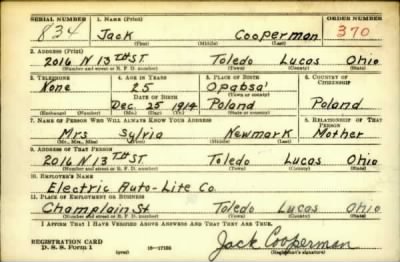 SERIAL NUMBER 1. NAME (Print) ORDER NUMBER
834 Jack Cooperman 370
(First) (Middle) (Last)
2. ADDRESS (Print)
2016 N 13TH ST Toledo Lucas Ohio
(Number and street or R. F. D. number) (Town) (County) (State)
3. TELEPHONE 4. AGE IN YEARS 5. PLACE OF BIRTH 6. COUNTRY OF CITIZENSHIP
None 25 Opabsa
DATE OF BIRTH (Town or county)
Dec. 25 1914 Poland Poland
(Mo.) (Day) (Yr.) (State or country)
7. NAME OF PERSON WHO WILL ALWAYS KNOW YOUR ADDRESS 8. RELATIONSHIP OF THAT PERSON
Mrs Sylvia Newmark Mother
(Mr., Mrs., Miss) (First) (Middle) (Last)
9. ADDRESS OF THAT PERSON
2016 N 13TH ST Toledo Lucas Ohio
(Number and street or R. F. D. number) (Town) (County) (State)
10. EMPLOYER'S NAME
Electric Auto-Lite Co
11. PLACE OF EMPLOYMENT OR BUSINESS
Champlain St Toledo Lucas Ohio
(Number and street or R. F. D. number) (Town) (County) (State)
I AFFIRM THAT I HAVE VERIFIED ABOVE ANSWERS AND THAT THEY ARE TRUE.
REGISTRATION CARD
D. S. S. Form 1 (over) 16-17105 Jack Cooperman
(Registrant's signature)